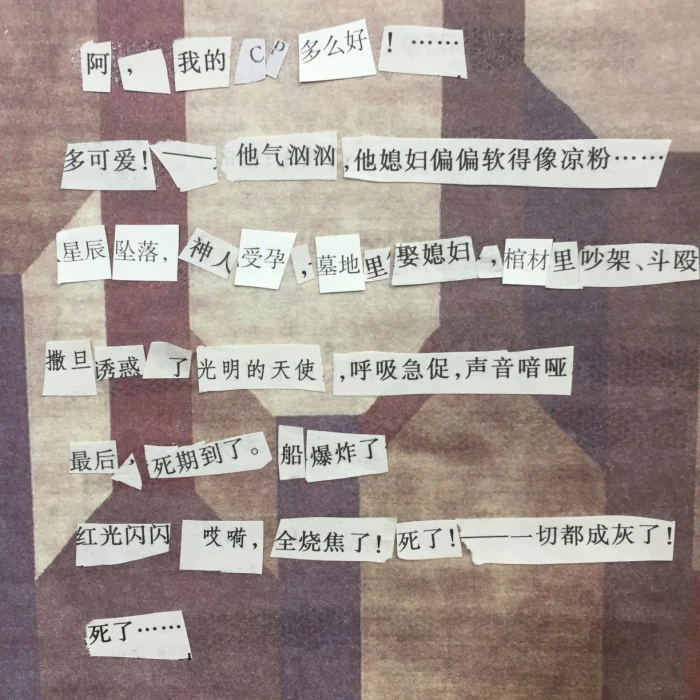 阿，我的Cp多么好！……
多可爱！——他气汹汹，他媳妇偏偏软得像凉粉……
星辰坠落，神人受孕，墓地里娶媳妇，棺材里吵架、斗殴
撒旦诱惑了光明的天使，呼吸急促，声音喑哑
最后，死期到了。船爆炸了
红光闪闪 哎嗬，全烧焦了！死了！——一切都成灰了！
死了……